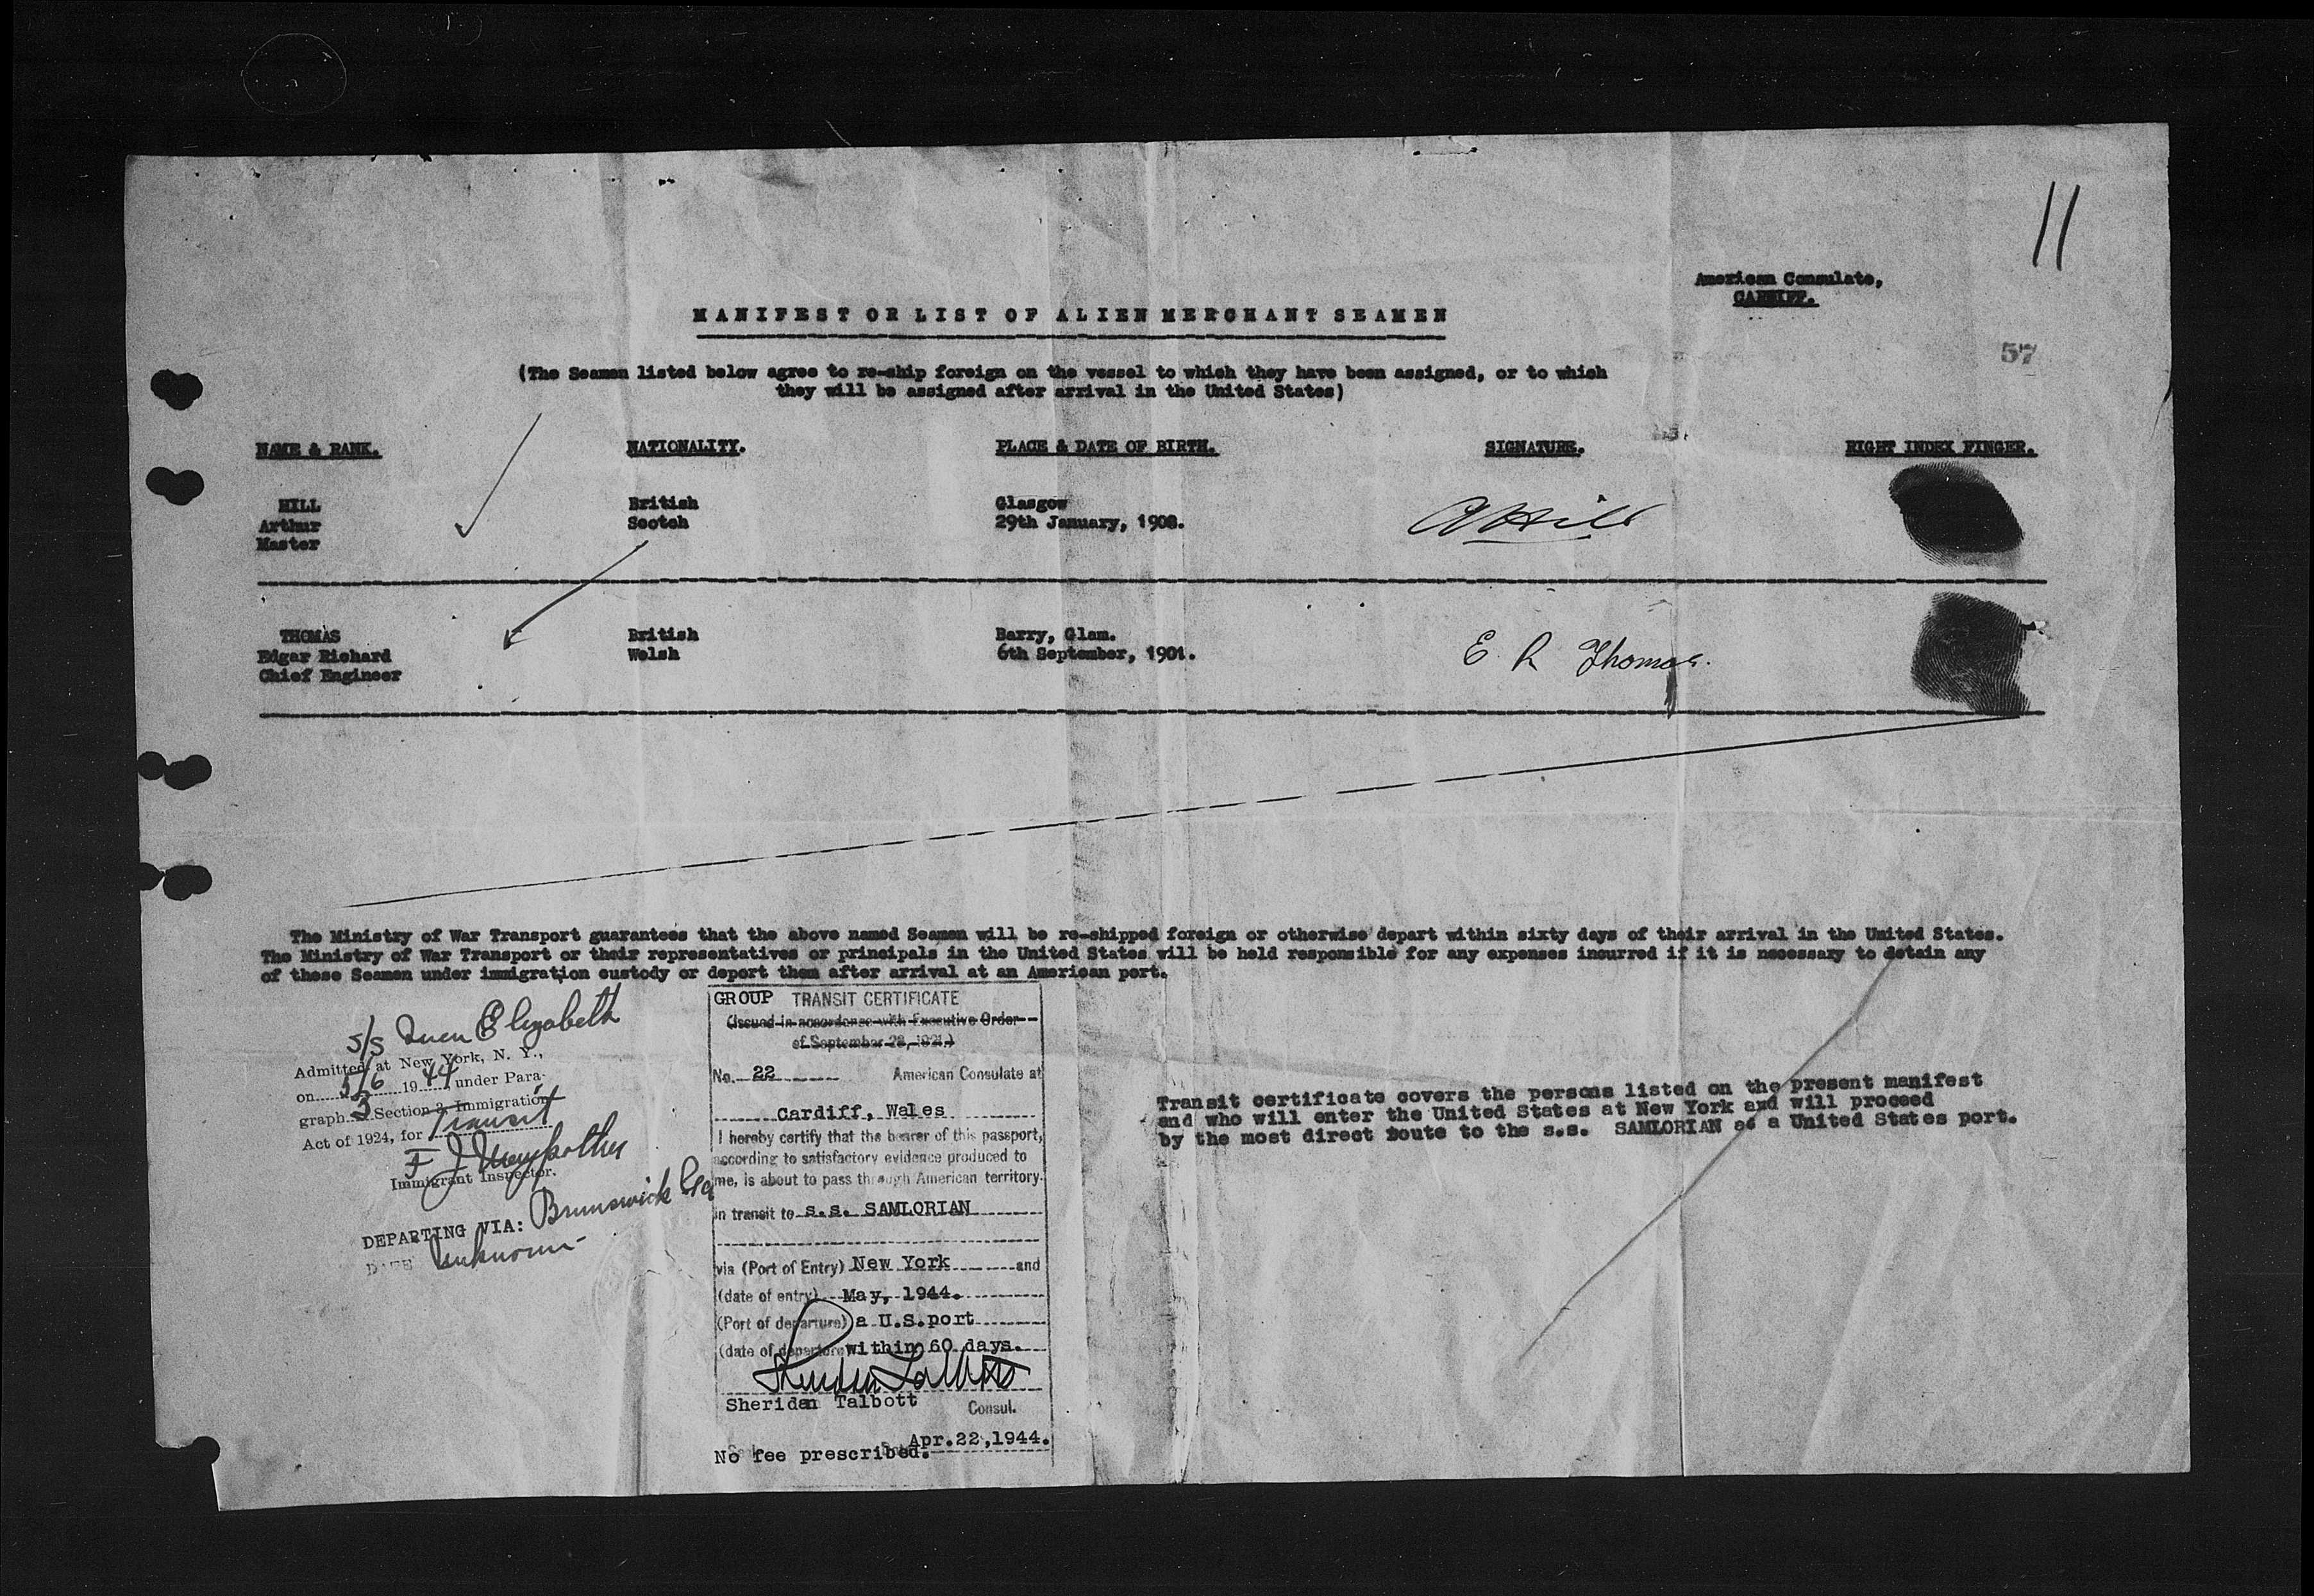 11
American Consulate,
CARDIFF.
MANIFEST OR LIST OF ALIEN MERCHANT SEAMEN
57
(The Seamen listed below agree to re-ship foreign on the vessel to which they have been assigned, or to which
they will be assigned after arrival in the United States)
NAME & RANK. NATIONALITY. PLACE & DATE OF BIRTH. SIGNATURE. RIGHT INDEX FINGER.
HILL British Glasgow
Arthur Scotch 29th January, 1908. A Hill
Master
THOMAS British Barry, Glam.
Edgar Richard Welsh 6th September, 1901. E R Thomas.
Chief Engineer
The Ministry of War Transport guarantees that the above named Seamen will be re-shipped foreign or otherwise depart within sixty days of their arrival in the United States.
The Ministry of War Transport or their representatives or principals in the United States will be held responsible for any expenses incurred if it is necessary to detain any
of these Seamen under immigration custody or deport them after arrival at an American port.
S/S Queen Elizabeth
Admitted at New York, N. Y.,
on 5/6 1944, under Para-
graph 3 Section 3, Immigration
Act of 1924, for Transit
Immigrant Inspector.
DEPARTING VIA: Brunswick Ga
DATE Unknown
GROUP TRANSIT CERTIFICATE
(Issued in accordance with Executive Order
of September 28, 1921.)
No. 22 American Consulate at
Cardiff, Wales
I hereby certify that the bearer of this passport,
according to satisfactory evidence produced to
me, is about to pass through American territory
in transit to s.s. SAMLORIAN
via (Port of Entry) New York and
(date of entry) May, 1944.
(Port of departure) a U.S.port
(date of departure within 60 days.
Sheridan Talbott
Sheridan Talbott Consul.
Apr.22,1944.
No fee prescribed.
Transit certificate covers the persons listed on the present manifest
and who will enter the United States at New York and will proceed
by the most direct route to the s.s. SAMLORIAN at a United States port.